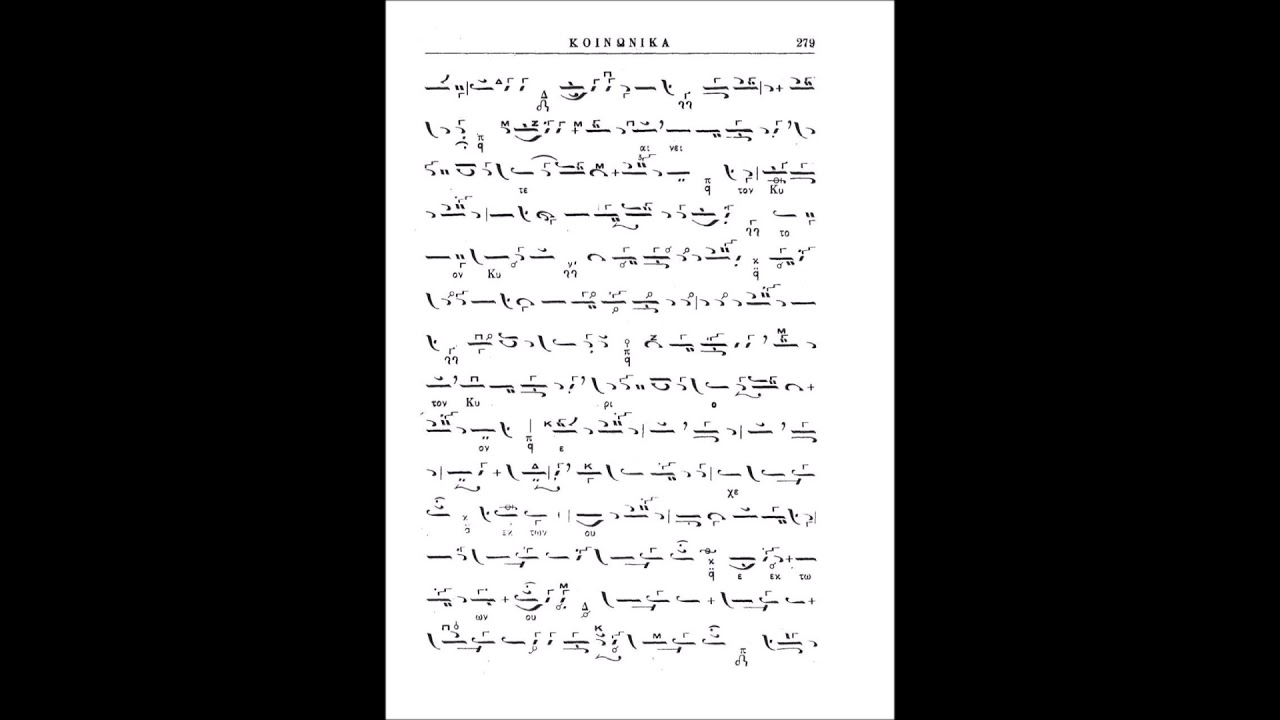 ΚΟΙΝΩΝΙΚΑ 279
αι νει
τε τον Κυ
το
ον Κυ
τον Κυ ρι ο
ον ε
χε
εκ των ου
ε εκ τω
ων ου